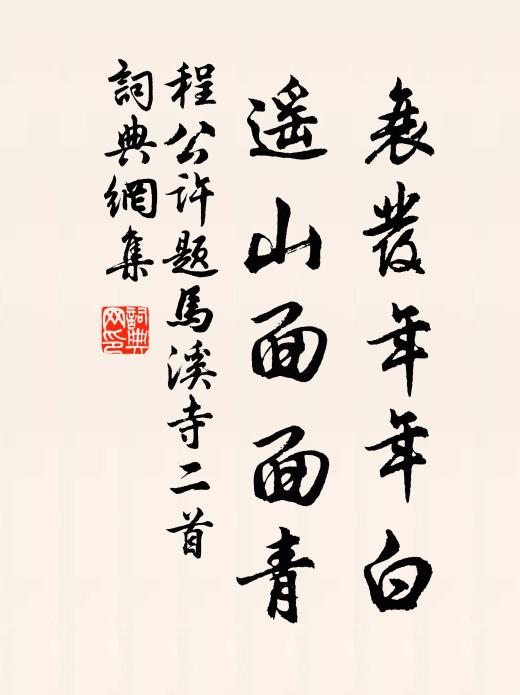 衰發年年白
遥山面面青
程公許題馬溪寺二首
詞典網集
詞典網印